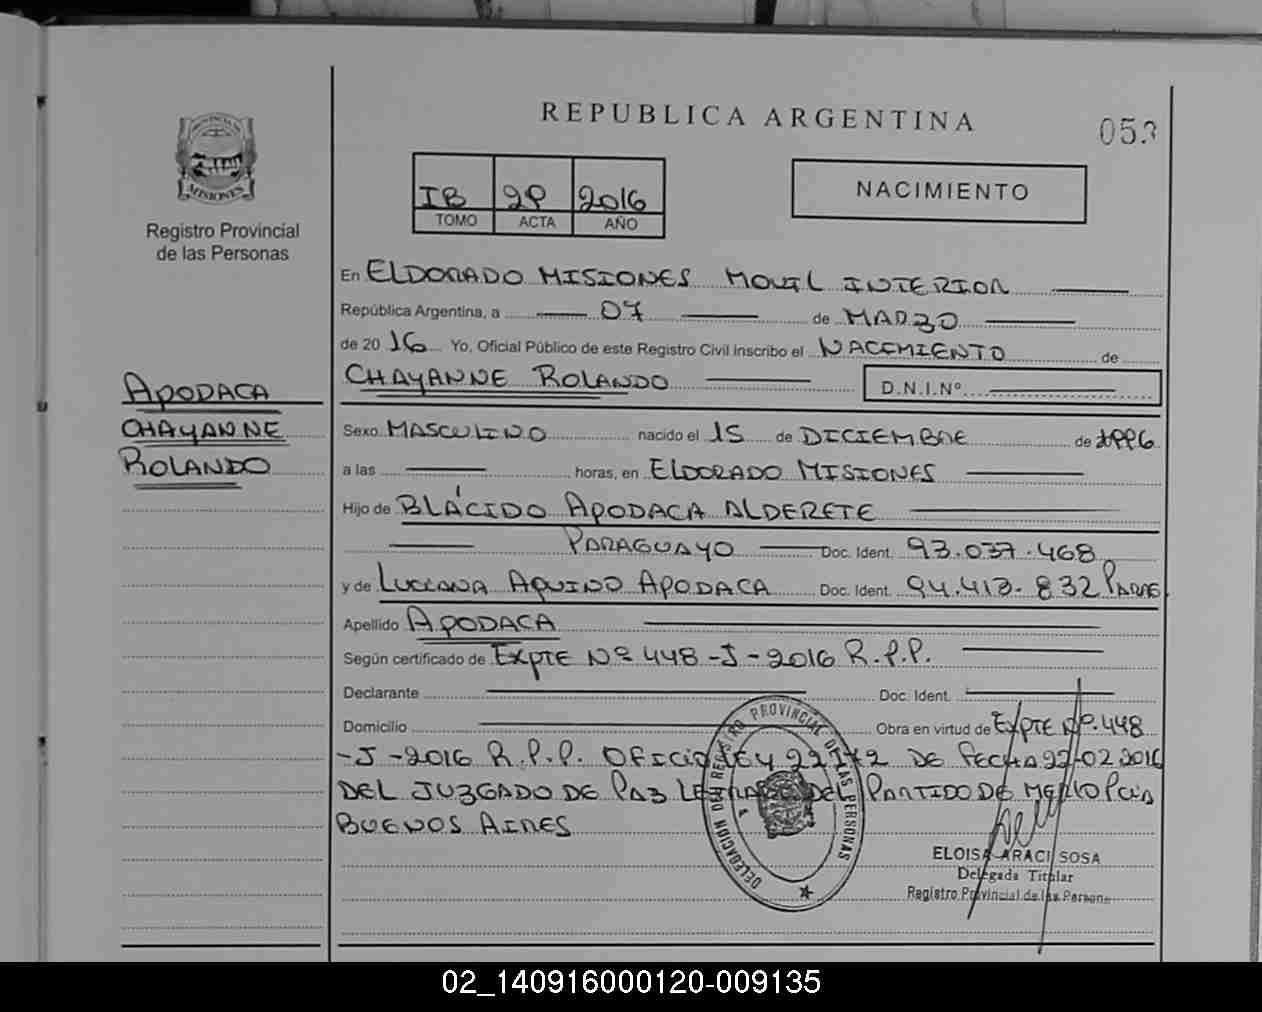 REPUBLICA ARGENTINA
053
PROVINCIA DE
MISIONES
Registro Provincial
de las Personas
IB 29 2016
TOMO ACTA AÑO
NACIMIENTO
En ELDORADO MISIONES MOVIL INTERIOR
República Argentina, a 07 de MARZO
de 2016 Yo, Oficial Público de este Registro Civil inscribo el NACIMIENTO de
CHAYANNE ROLANDO D.N.I.Nº
APODACA
CHAYANNE
ROLANDO
Sexo MASCULINO nacido el 15 de DICIEMBRE de 1996
a las horas, en ELDORADO MISIONES
Hijo de BLÁCIDO APODACA ALDERETE
PARAGUAYO Doc. Ident. 93.037.468
y de LUCIANA AQUINO APODACA Doc. Ident. 94.413.832 PARAG
Apellido APODACA
Según certificado de EXPTE Nº 448-J-2016 R.P.P.
Declarante Doc. Ident.
Domicilio Obra en virtud de EXPTE Nº.448
-J-2016 R.P.P. OFICIO DE FECHA 22-02.2016
DEL JUZGADO DE PAZ LETRADO DEL PARTIDO DE MERLO PCIA
BUENOS AIRES
DELEGACION DEL REGISTRO PROVINCIAL DE LAS PERSONAS
ELOISA ARACI SOSA
Delegada Titular
Registro Provincial de las Persona
02_140916000120-009135